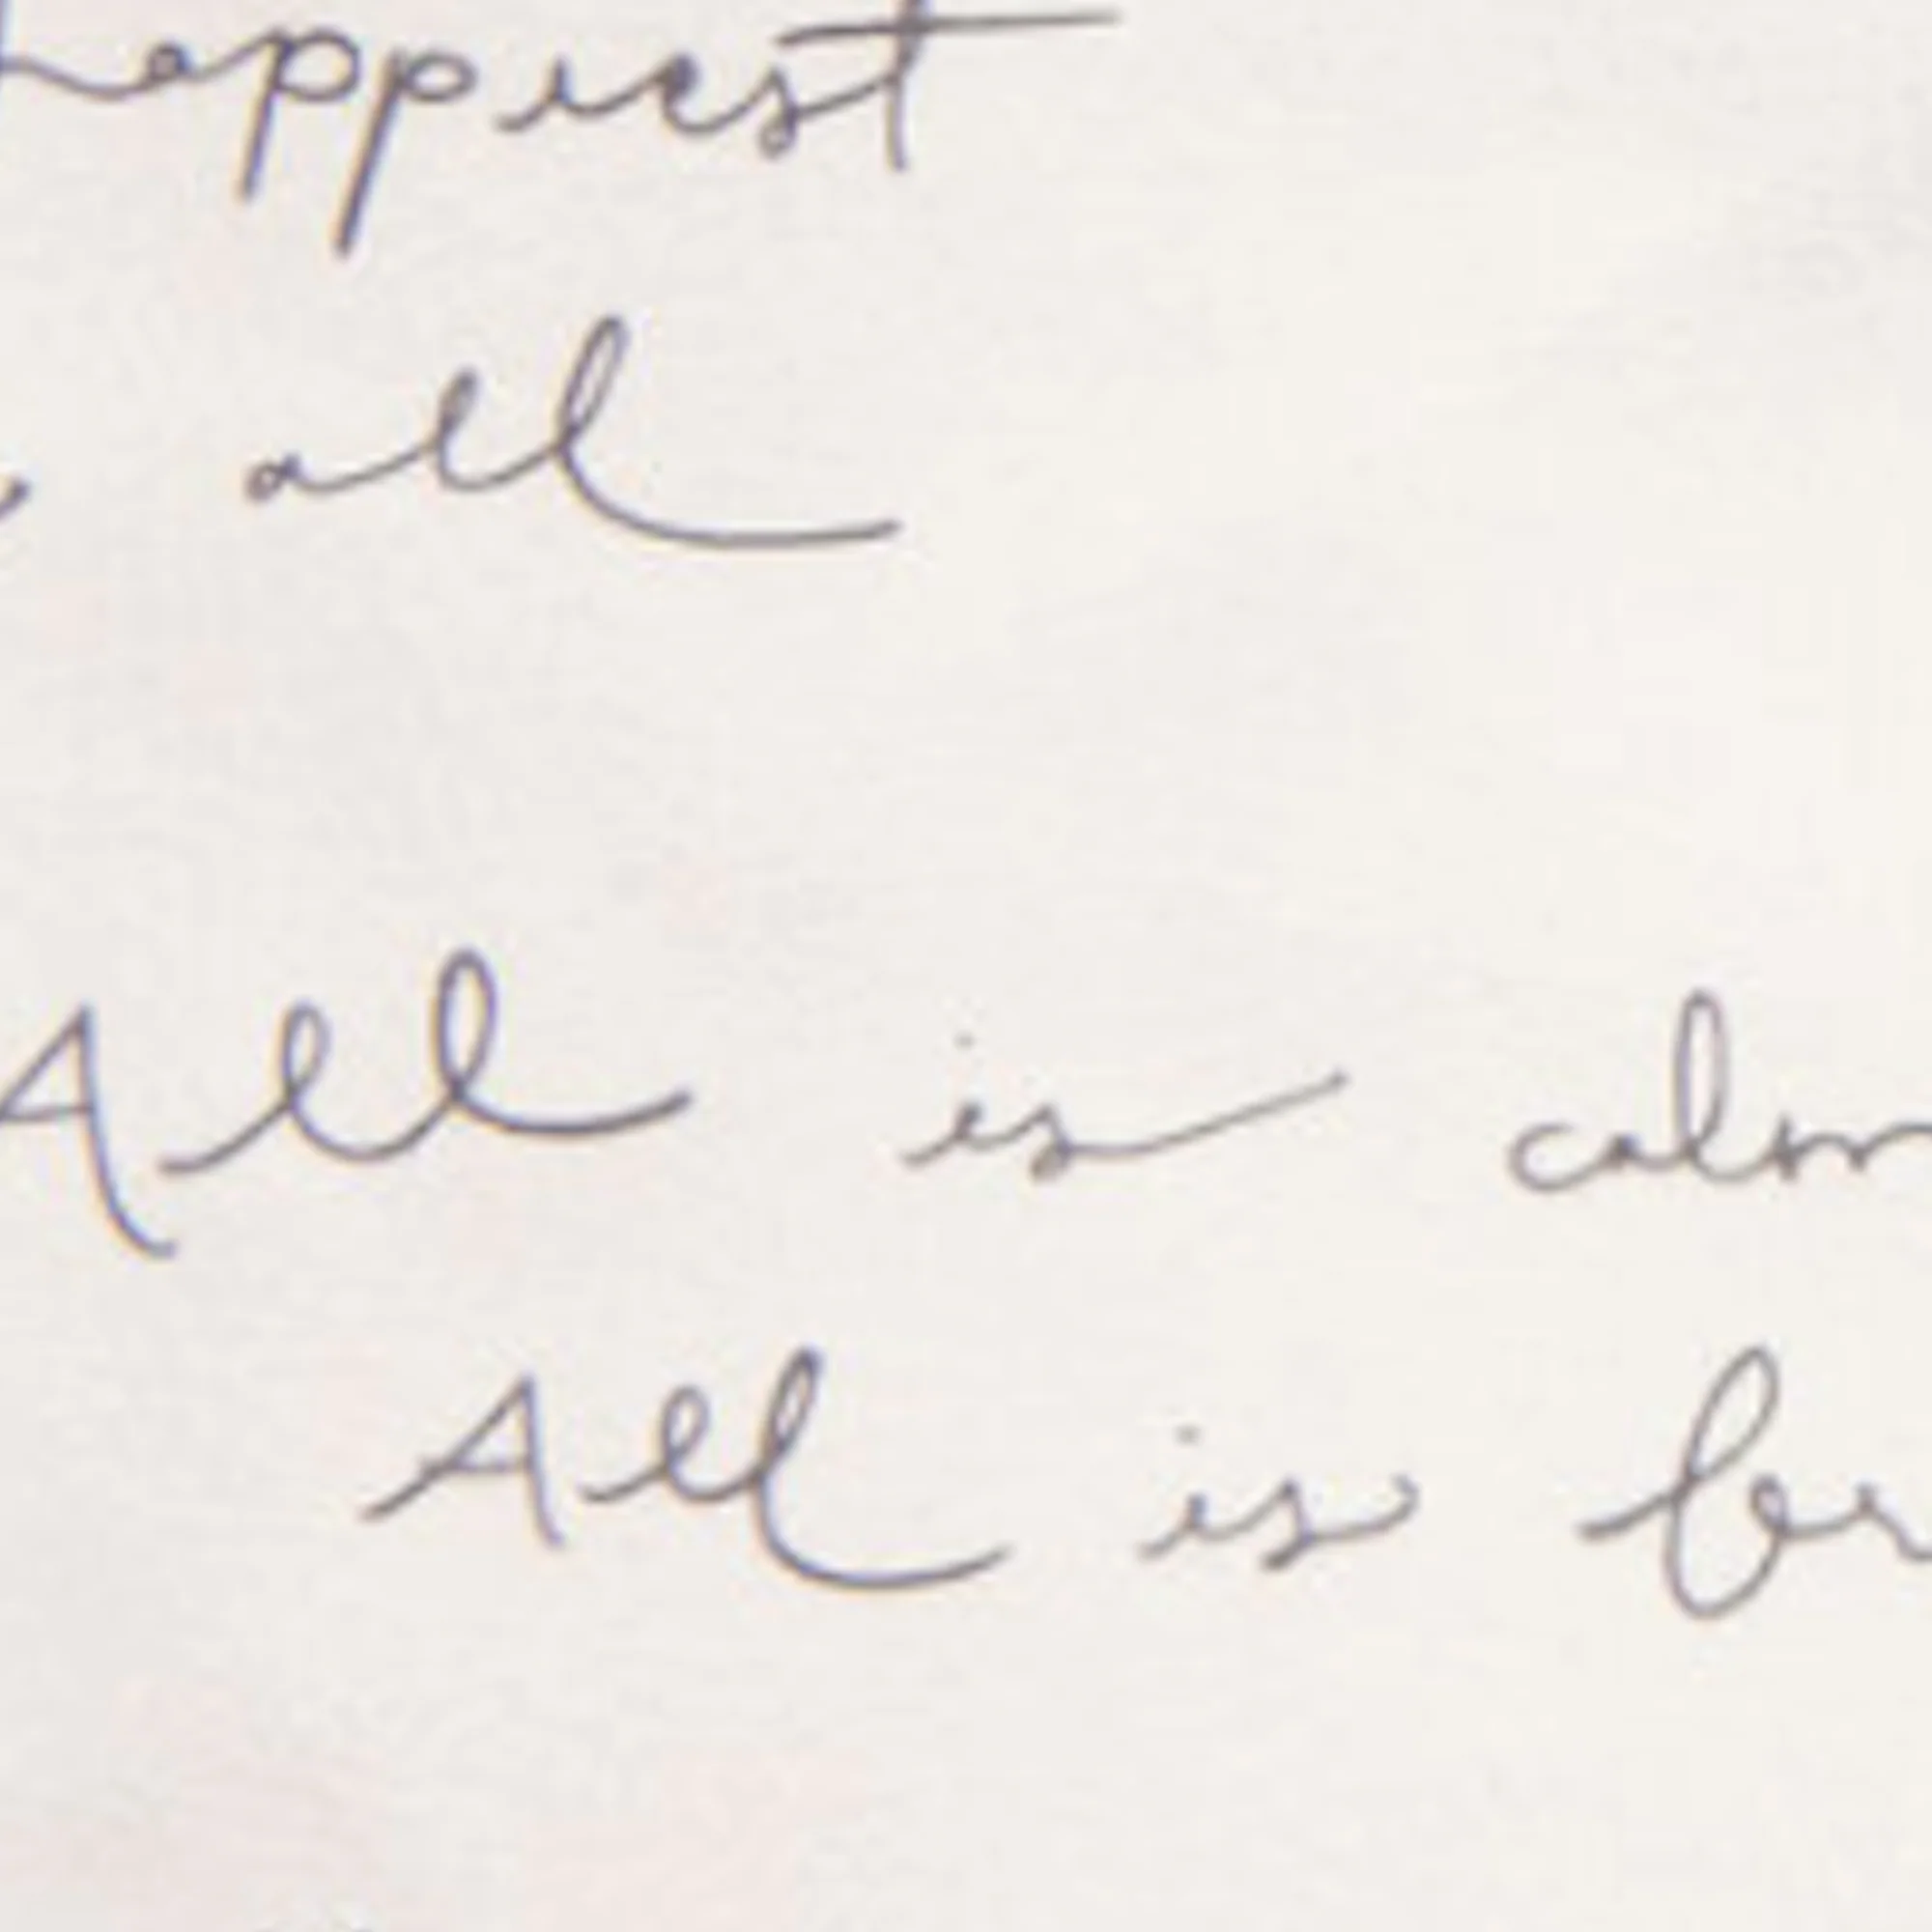 happiest
all
All is calm
All is